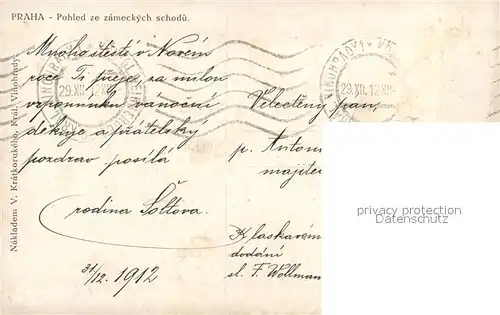 PRAHA - Pohled ze zámeckých schodů.
Nákladem V. Krátkorukého, Král. Vinohrady.
29.XII.12
29.XII.12
Mnoho štěstí v Novém
roce Ti přeje, za milou
vzpomínku vánoční
děkuje a přátelský
pozdrav posílá
rodina Šoltova.
31/12. 1912
Velectěný pan,
p. Anton
majitel
K laskavém
dodání
sl. F. Wollman
privacy protection
Datenschutz